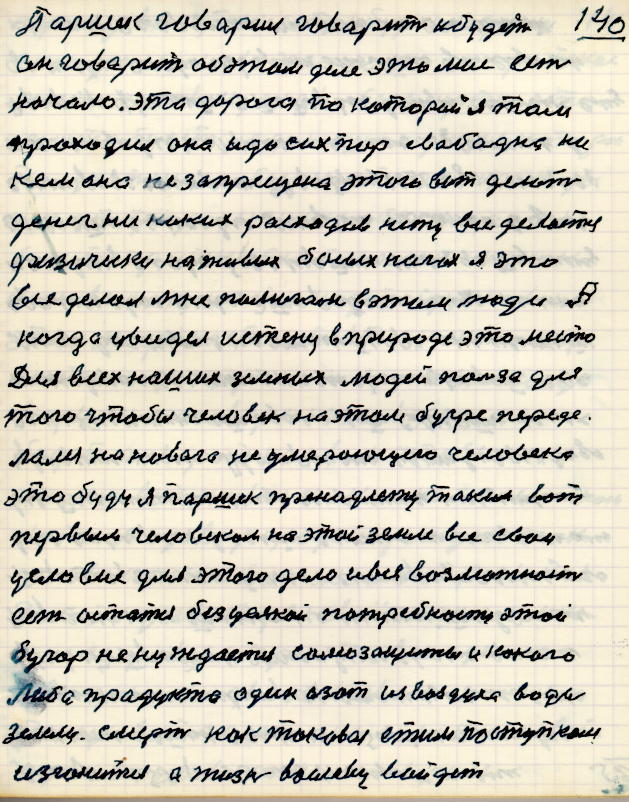 Паршек говарил говарит и будет 140
он говарит об этом деле это мое ест
начало. Эта дорога по которой я там
проходил она и до сих пор свабадна ни
кем она не запрещена этого вот делат
денег ни каких расходав нету все делается
физически на живых белых ногах я это
все делал мне помогали в этом люди Я
когда увидел истену в природе это место
Для всех наших земных людей польза для
того чтобы человек на этом бугре переде.
лался на новага не умерающего человека
это буду я паршек пренадлежу таким вот
первым человеком на этой земле все свои
условие для этого дело и вся возможност
ест остатся без усякой потребности этой
бугор не нуждается самозащиты и какого
либа прадукта один азот из воздуха воды
земли. смерт как таковая етим поступком
изгонится а жизн восмену войдет